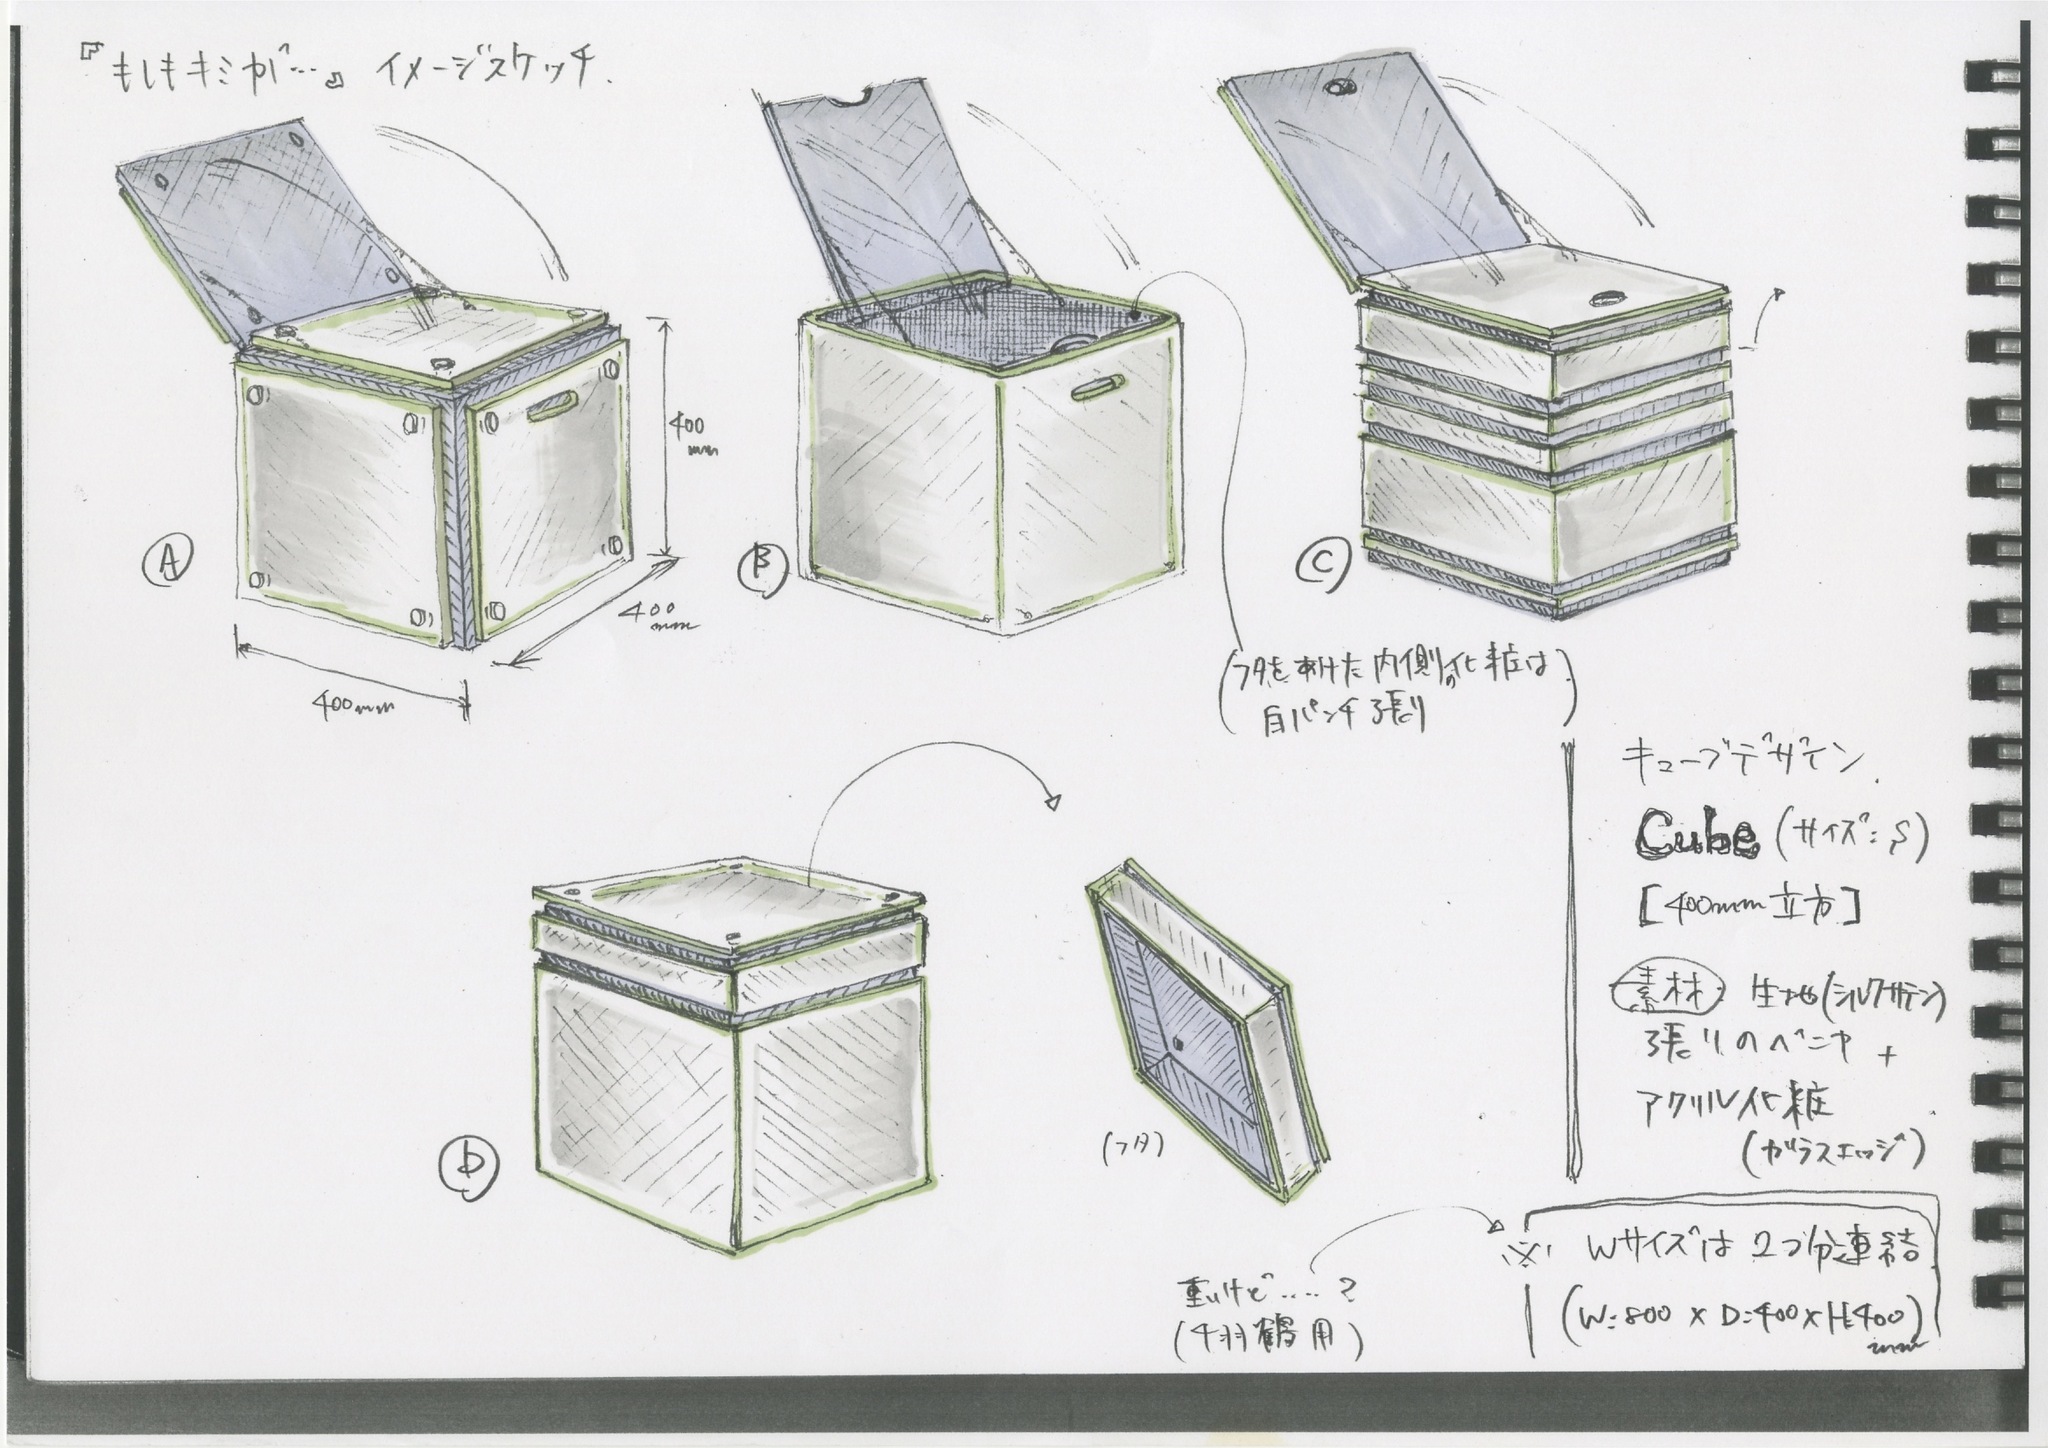 『もしもキミが…』 イメージスケッチ.
A
B
C
400
mm
400
mm
400mm
(フタをあけた内側の化粧は
白パンチ張り)
キューブデザイン.
Cube (サイズ:S)
[400mm立方]
素材 生地(シルクサテン)
張りのベニヤ +
アクリル化粧
(ガラスエッジ)
D
(フタ)
重いけど‥‥?
(千羽鶴用)
※ Wサイズは2つ分連結
(W:800 x D:400 x H:400)
mm